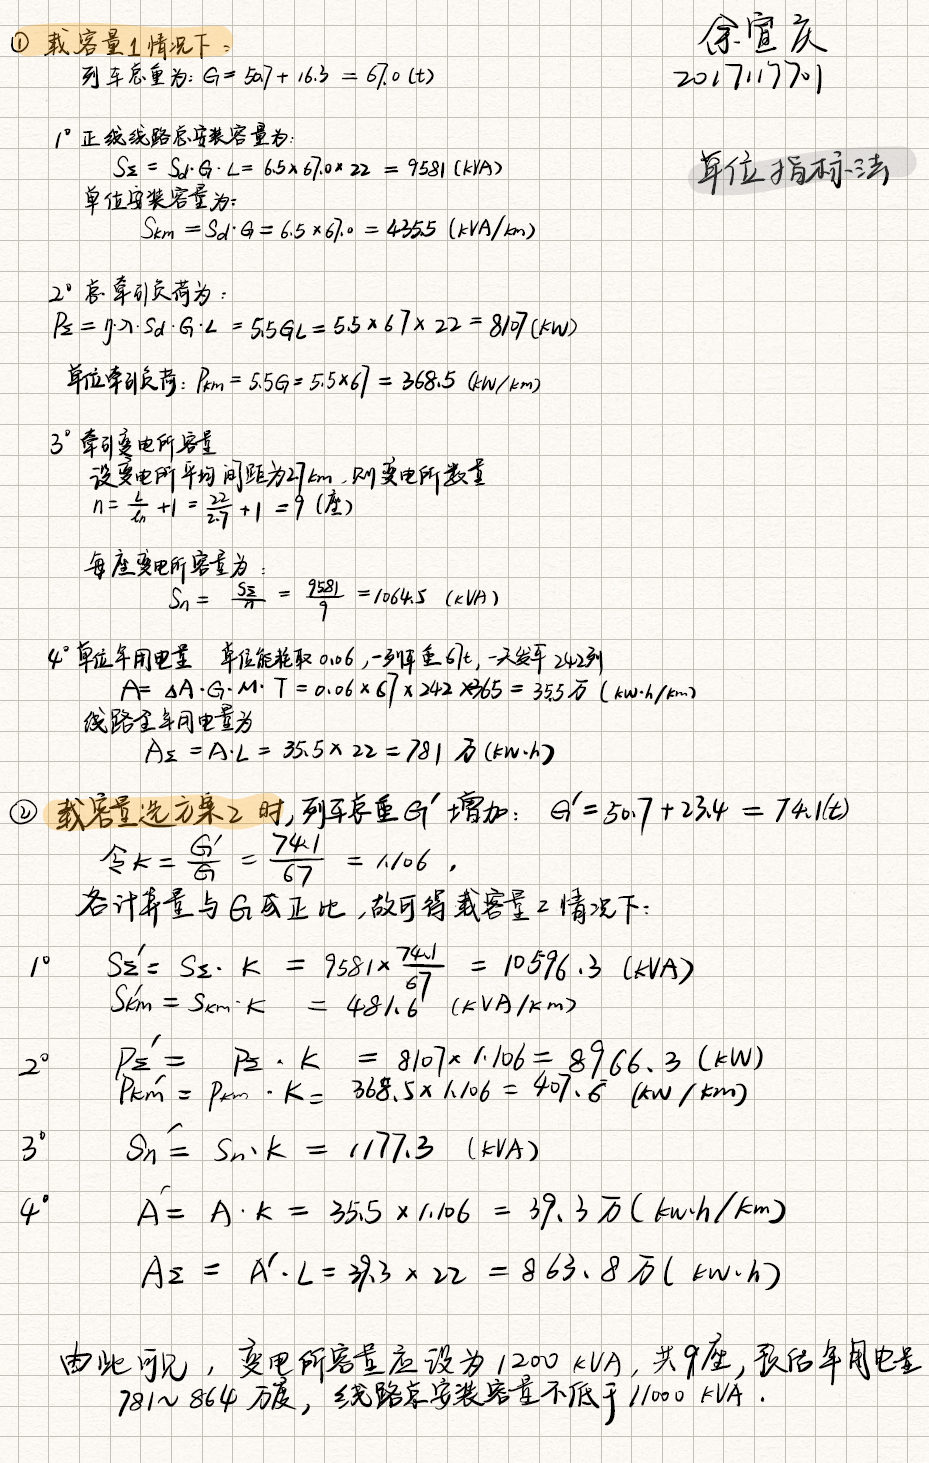 余宜庆
2017117701
单位指标法
① 载容量1情况下:
列车总重为: G = 50.7 + 16.3 = 67.0 (t)
1° 正线线路总安装容量为:
SΣ = Sd·G·L = 6.5×67.0×22 = 9581 (kVA)
单位安装容量为:
Skm = Sd·G = 6.5×67.0 = 435.5 (kVA/km)
2° 总牵引负荷为:
PΣ = η·λ·Sd·G·L = 5.5GL = 5.5×67×22 = 8107 (kW)
单位牵引负荷: Pkm = 5.5G = 5.5×67 = 368.5 (kW/km)
3° 牵引变电所容量
设变电所平均间距为2.7km, 则变电所数量
n = L/Ln + 1 = 22/2.7 + 1 = 9 (座)
每座变电所容量为:
Sn = SΣ/n = 9581/9 = 1064.5 (kVA)
4° 单位年用电量 单位能耗取0.06, 一列车重67t, 一天发车242列
A = ΔA·G·M·T = 0.06×67×242×365 = 35.5万 (kW·h/km)
线路全年用电量为
AΣ = A·L = 35.5×22 = 781万 (kW·h)
② 载容量选方案2时, 列车总重G′增加: G′ = 50.7 + 23.4 = 74.1 (t)
令K = G′/G = 74.1/67 = 1.106,
各计算量与G成正比, 故可得载容量2情况下:
1° SΣ′ = SΣ·K = 9581×74.1/67 = 10596.3 (kVA)
Skm′ = Skm·K = 481.6 (kVA/km)
2° PΣ′ = PΣ·K = 8107×1.106 = 8966.3 (kW)
Pkm′ = Pkm·K = 368.5×1.106 = 407.6 (kW/km)
3° Sn′ = Sn·K = 1177.3 (kVA)
4° A′ = A·K = 35.5×1.106 = 39.3万 (kW·h/km)
AΣ = A′·L = 39.3×22 = 863.8万 (kW·h)
由此可见, 变电所容量应设为1200 kVA, 共9座, 预估年用电量
781~864万度, 线路总安装容量不低于11000 kVA.